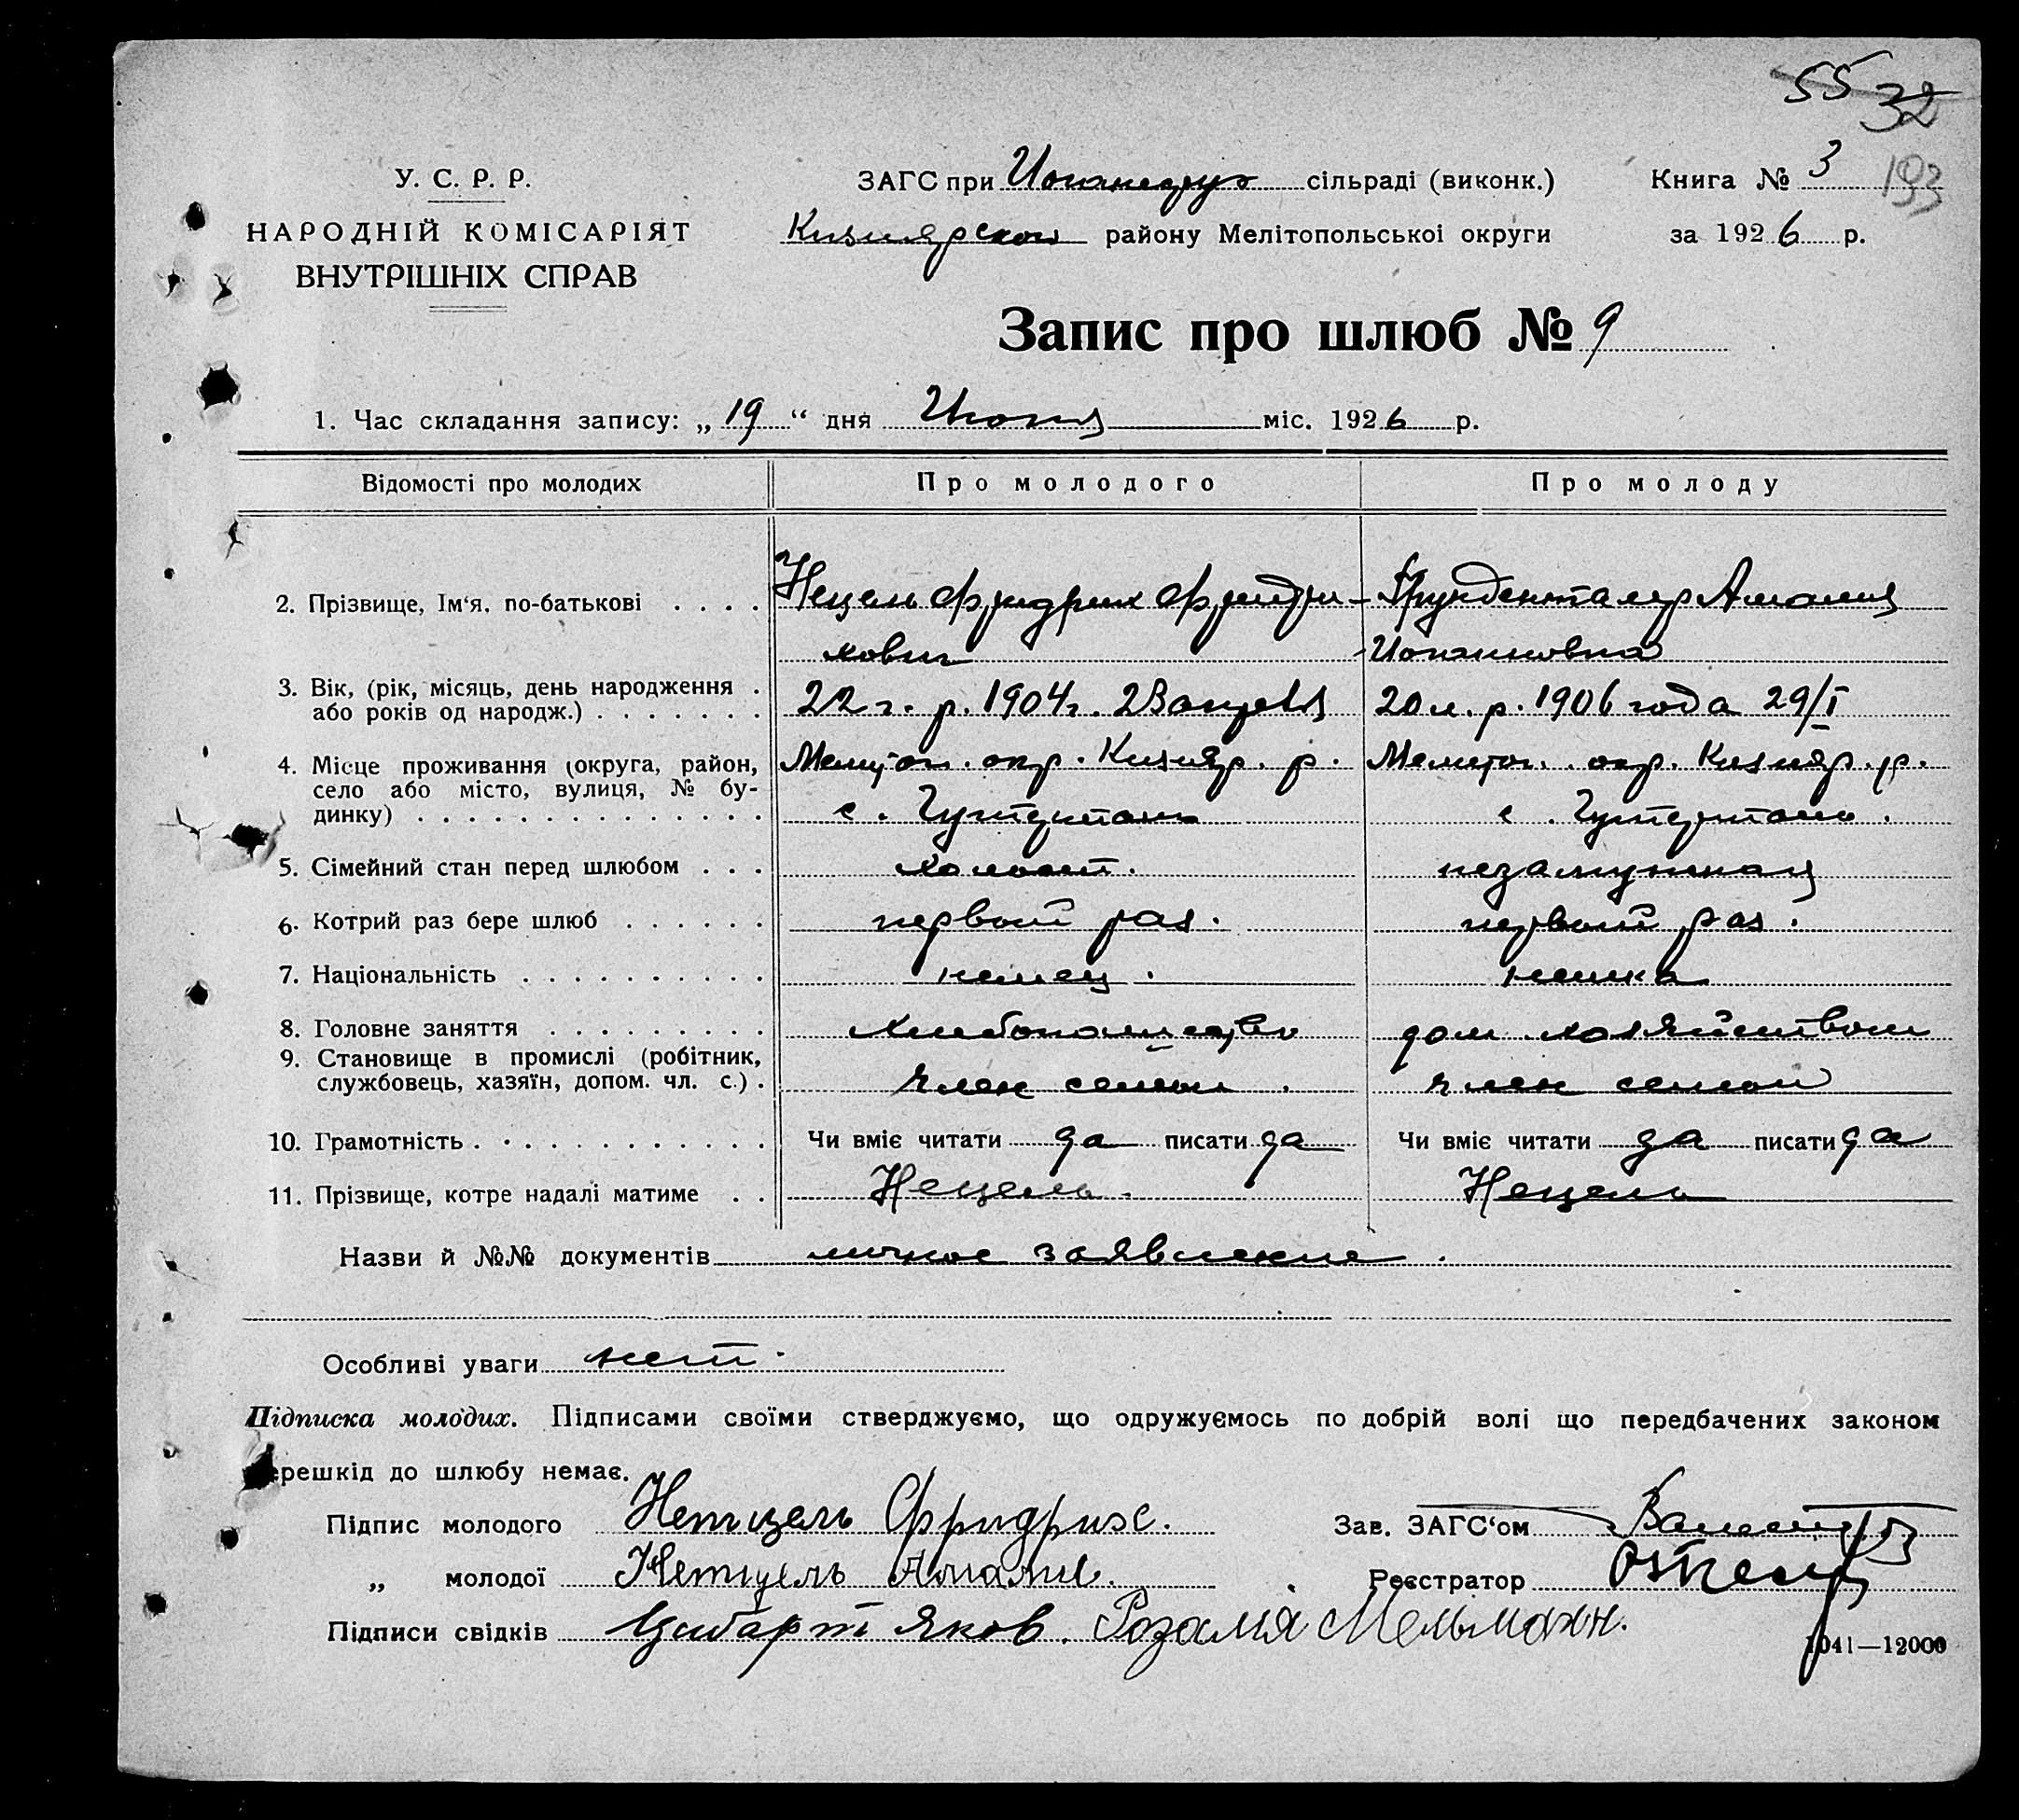 55 32
У. С. Р. Р.
ЗАГС при Иоганедру сільраді (виконк.)
Книга № 3 193
НАРОДНІЙ КОМІСАРІЯТ
Кизиярском району Мелітопольської округи
за 1926 р.
ВНУТРІШНІХ СПРАВ
Запис про шлюб № 9
1. Час складання запису: „19“ дня Июня міс. 1926 р.
Відомості про молодих
Про молодого
Про молоду
2. Прізвище, Ім‘я, по-батькові . . . .
Нецель Фридрих Фридри-
хович
Грунденталер Амалия
Иоганновна
3. Вік, (рік, місяць, день народження .
або років од народж.) . . . . . . .
22 г. р. 1904г. 23 августа
20 л. р. 1906 года 29/I
4. Місце проживання (округа, район,
село або місто, вулиця, № бу-
динку) . . . . . . . . . . . . . .
Мелитоп. окр. Кизияр. р.
с. Гутдиталь
Мелитоп. окр. Кизияр. р.
с. Гутдиталь.
5. Сімейний стан перед шлюбом . . .
холост.
незамужная
6. Котрий раз бере шлюб . . . . . .
первый раз.
первый раз.
7. Національність . . . . . . . . . .
немец.
немка
8. Головне заняття . . . . . . . . .
хлебопашество
дом хозяйством
9. Становище в промислі (робітник,
службовець, хазяїн, допом. чл. с.) .
член семьи.
член семьи
10. Грамотність . . . . . . . . . . . .
Чи вміє читати да писати да
Чи вміє читати да писати да
11. Прізвище, котре надалі матиме . .
Нецель.
Нецель
Назви й №№ документів личное заявление.
Особливі уваги нет.
Підписка молодих. Підписами своїми стверджуємо, що одружуємось по добрій волі що передбачених законом
перешкід до шлюбу немає.
Підпис молодого Нетцель Фридрих.
Зав. ЗАГС‘ом
„ молодої Нетцель Амалие.
Реєстратор
Підписи свідків Цибарт Яков. Розалія Мельманн.
1041—12000